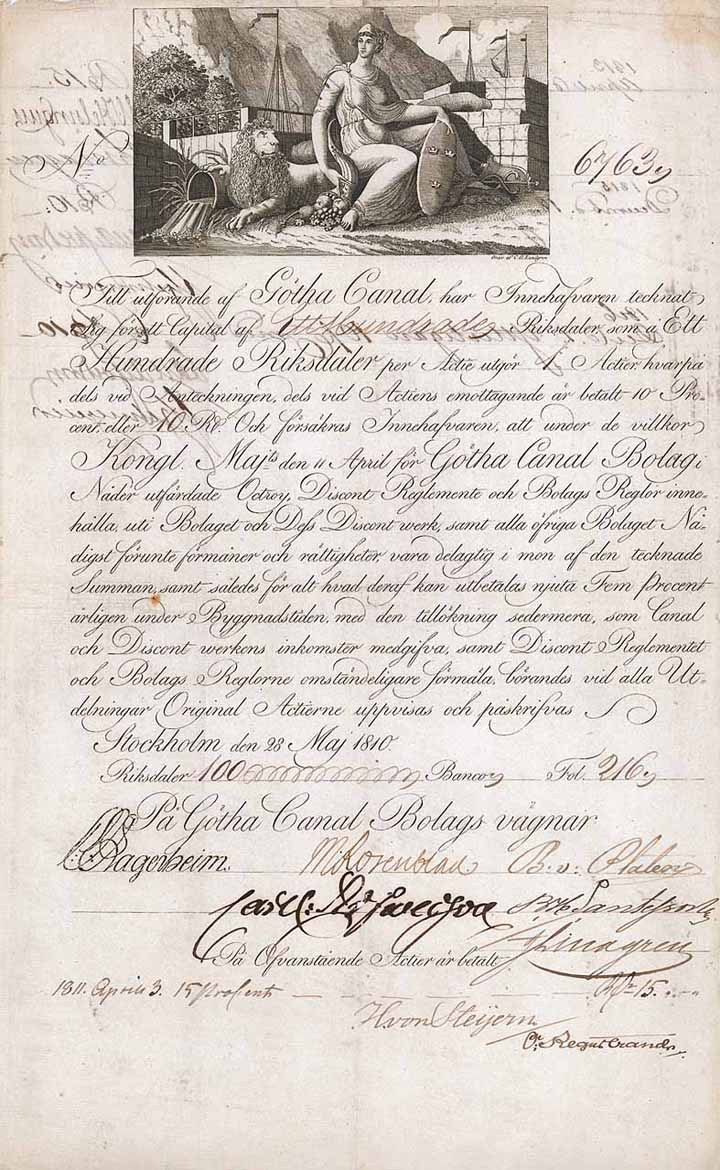 No 6763
Grav. af C. D. Lundgren
Till utförande af Götha Canal, har Innehafvaren tecknat
Sig för ett Capital af Ett Hundrade Riksdaler, som à Ett
Hundrade Riksdaler per Actie utgör 1 Actier hvarpå
dels vid Anteckningen, dels vid Actiens emottagande är betalt 10 Pro
cent. eller 10 Rd. Och försäkras Innehafvaren, att under de villkor
Kongl. Majts den 11 April för Götha Canal Bolag i
Nåder utfärdade Octroy, Discont Reglemente och Bolags Reglor inne-
hålla, uti Bolaget och Dess Discont werk, samt alla öfriga Bolaget Nå-
digst förunte förmåner och rättigheter vara delagtig i mon af den tecknade
Summan, samt således för alt hvad deraf kan utbetalas njuta Fem Procent
årligen under Byggnadstiden, med den tillökning sedermera, som Canal
och Discont werkens inkomster medgifva, samt Discont Reglementet
och Bolags Reglorne omständeligare förmäla, börandes vid alla Ut-
delningar Original Actierne uppvisas och påskrifvas
Stockholm den 28 Maj 1810.
Riksdaler 100 Banco Fol. 216
På Götha Canal Bolags vägnar
Lagerheim. M Rosenblad B. v. Platen
Lindgren
På Ofvanstående Actier är betalt
1811. April 3. 15 procent Rdr 15.
H von Steijern